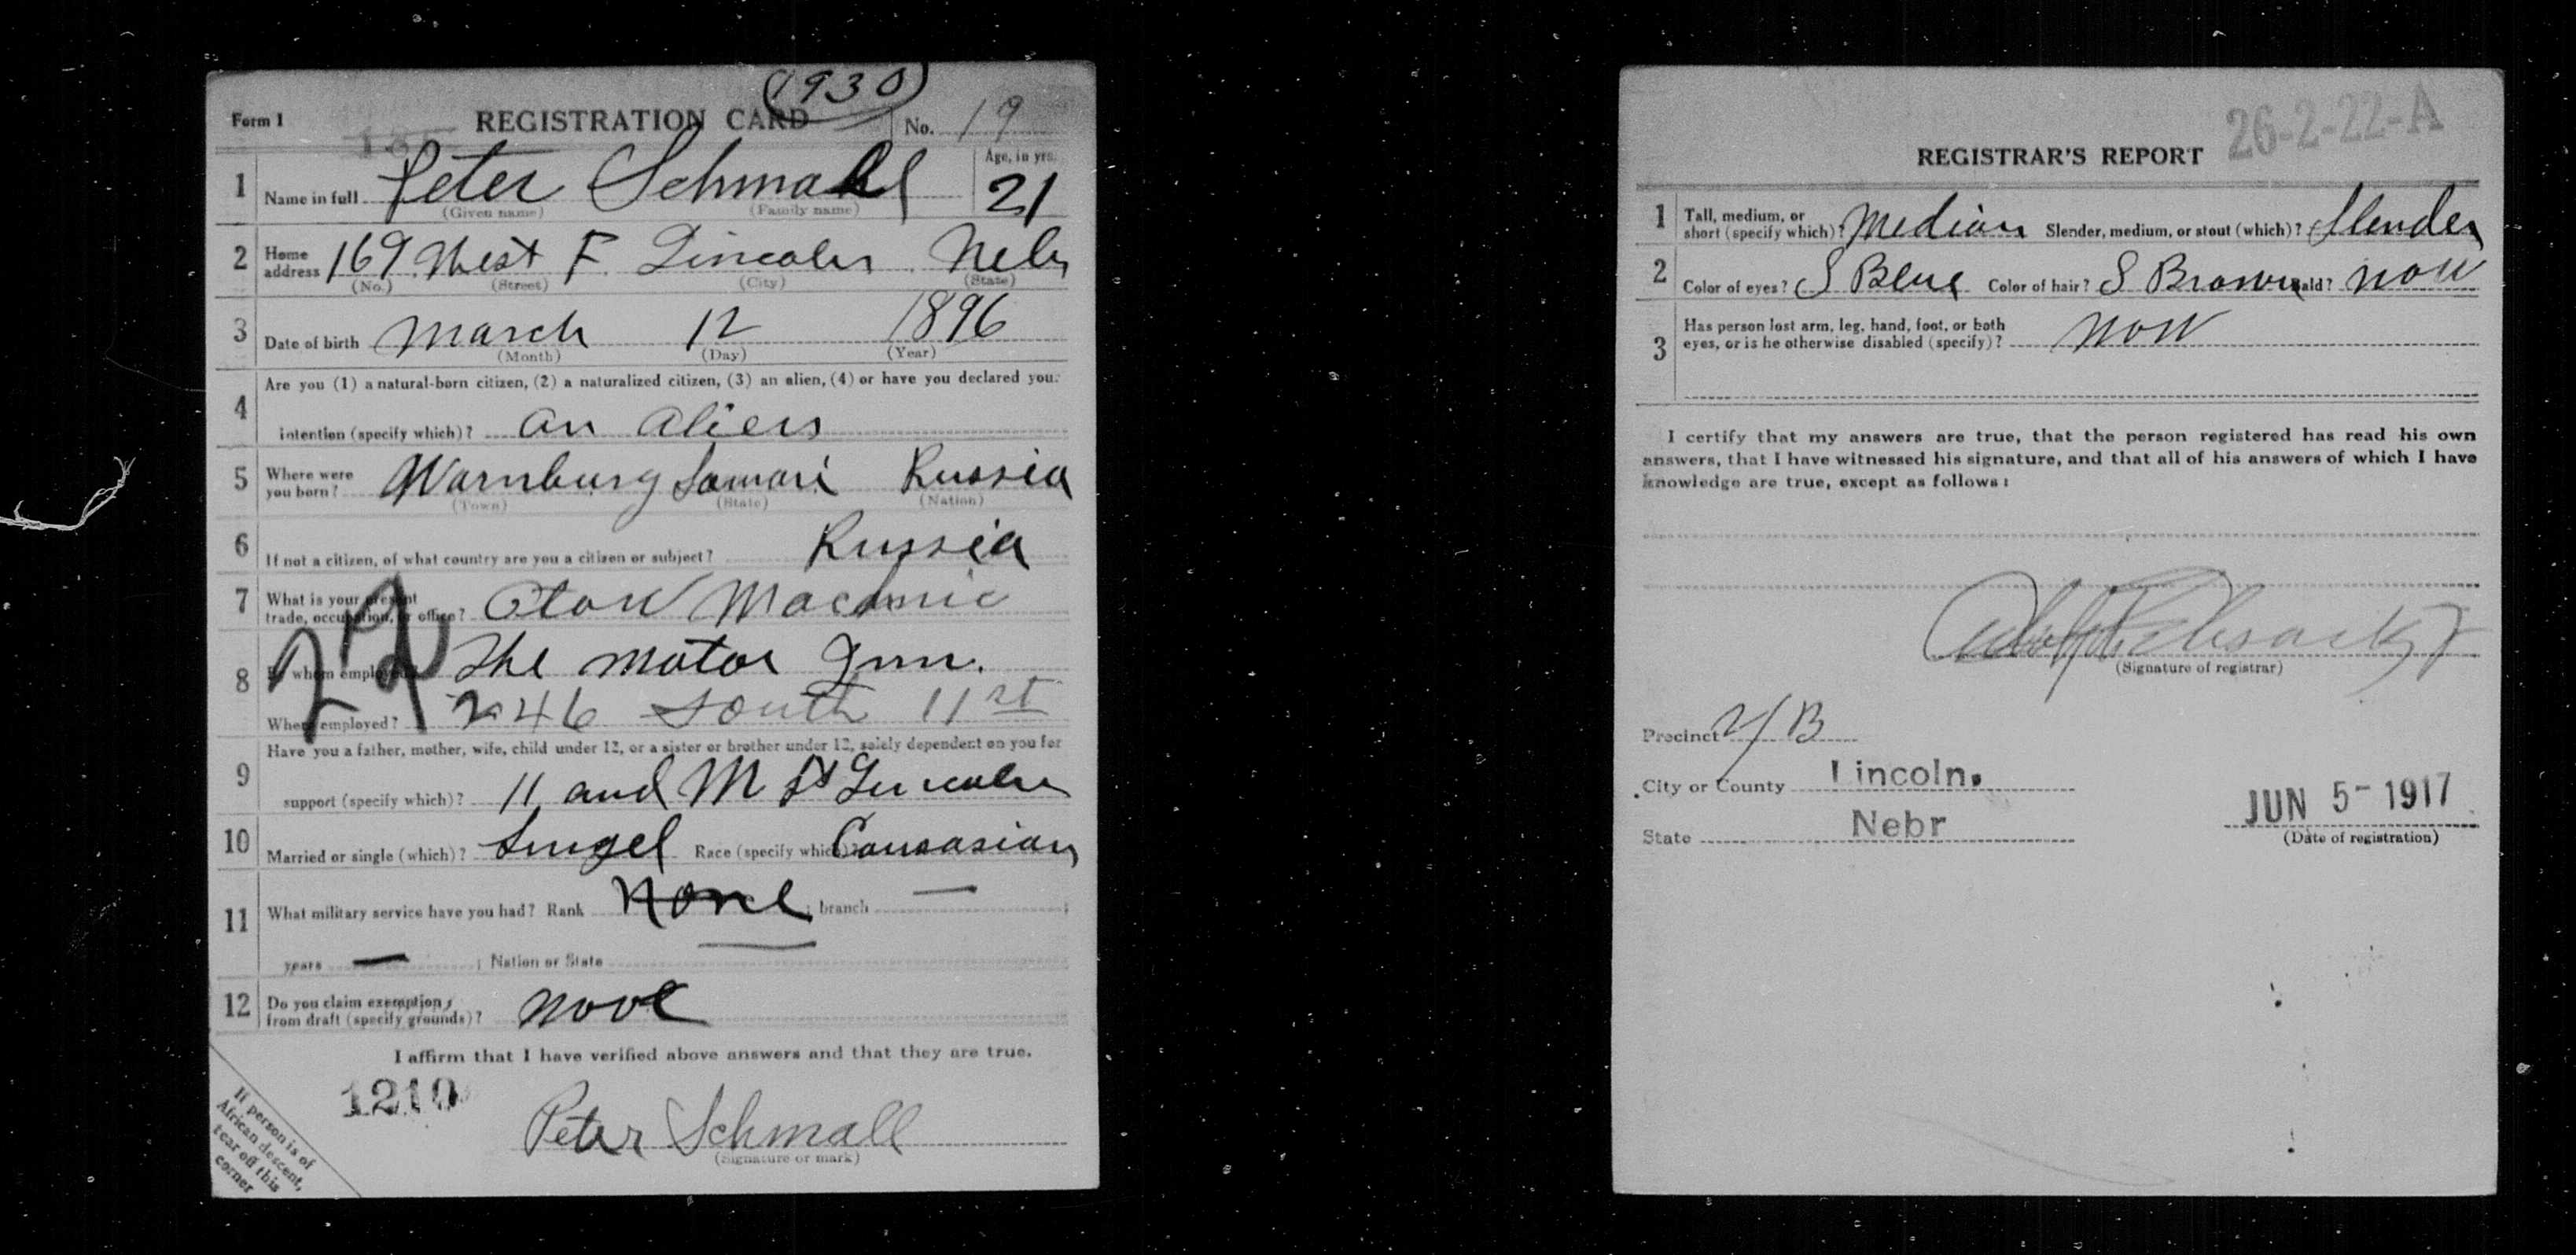 (1930)
Form 1 REGISTRATION CARD No. 19
1 Name in full Peter Schmall Age, in yrs. 21
(Given name) (Family name)
2 Home address 169 West F. Lincoln Nebr
(No.) (Street) (City) (State)
3 Date of birth March 12 1896
(Month) (Day) (Year)
4 Are you (1) a natural-born citizen, (2) a naturalized citizen, (3) an alien, (4) or have you declared your
intention (specify which)? an Alien
5 Where were you born? Warnburg Samari Russia
(Town) (State) (Nation)
6 If not a citizen, of what country are you a citizen or subject? Russia
7 What is your present
trade, occupation, or office?
8 By whom employed? The Motor
Where employed? 246 South 11 st
9 Have you a father, mother, wife, child under 12, or a sister or brother under 12, solely dependent on you for
support (specify which)? 11 and M St Lincoln
10 Married or single (which)? Singel Race (specify which)? Causasian
11 What military service have you had? Rank None ; branch —
years — ; Nation or State —
12 Do you claim exemption
from draft (specify grounds)? None
I affirm that I have verified above answers and that they are true.
1210
Peter Schmall
(Signature or mark)
If person is of
African descent,
tear off this
corner
26-2-22-A
REGISTRAR'S REPORT
1 Tall, medium, or
short (specify which)? Medium Slender, medium, or stout (which)? Slender
2 Color of eyes? S Blue Color of hair? S Brown Bald? non
3 Has person lost arm, leg, hand, foot, or both
eyes, or is he otherwise disabled (specify)? non
I certify that my answers are true, that the person registered has read his own
answers, that I have witnessed his signature, and that all of his answers of which I have
knowledge are true, except as follows:
(Signature of registrar)
Precinct B
City or County Lincoln.
State Nebr
JUN 5- 1917
(Date of registration)